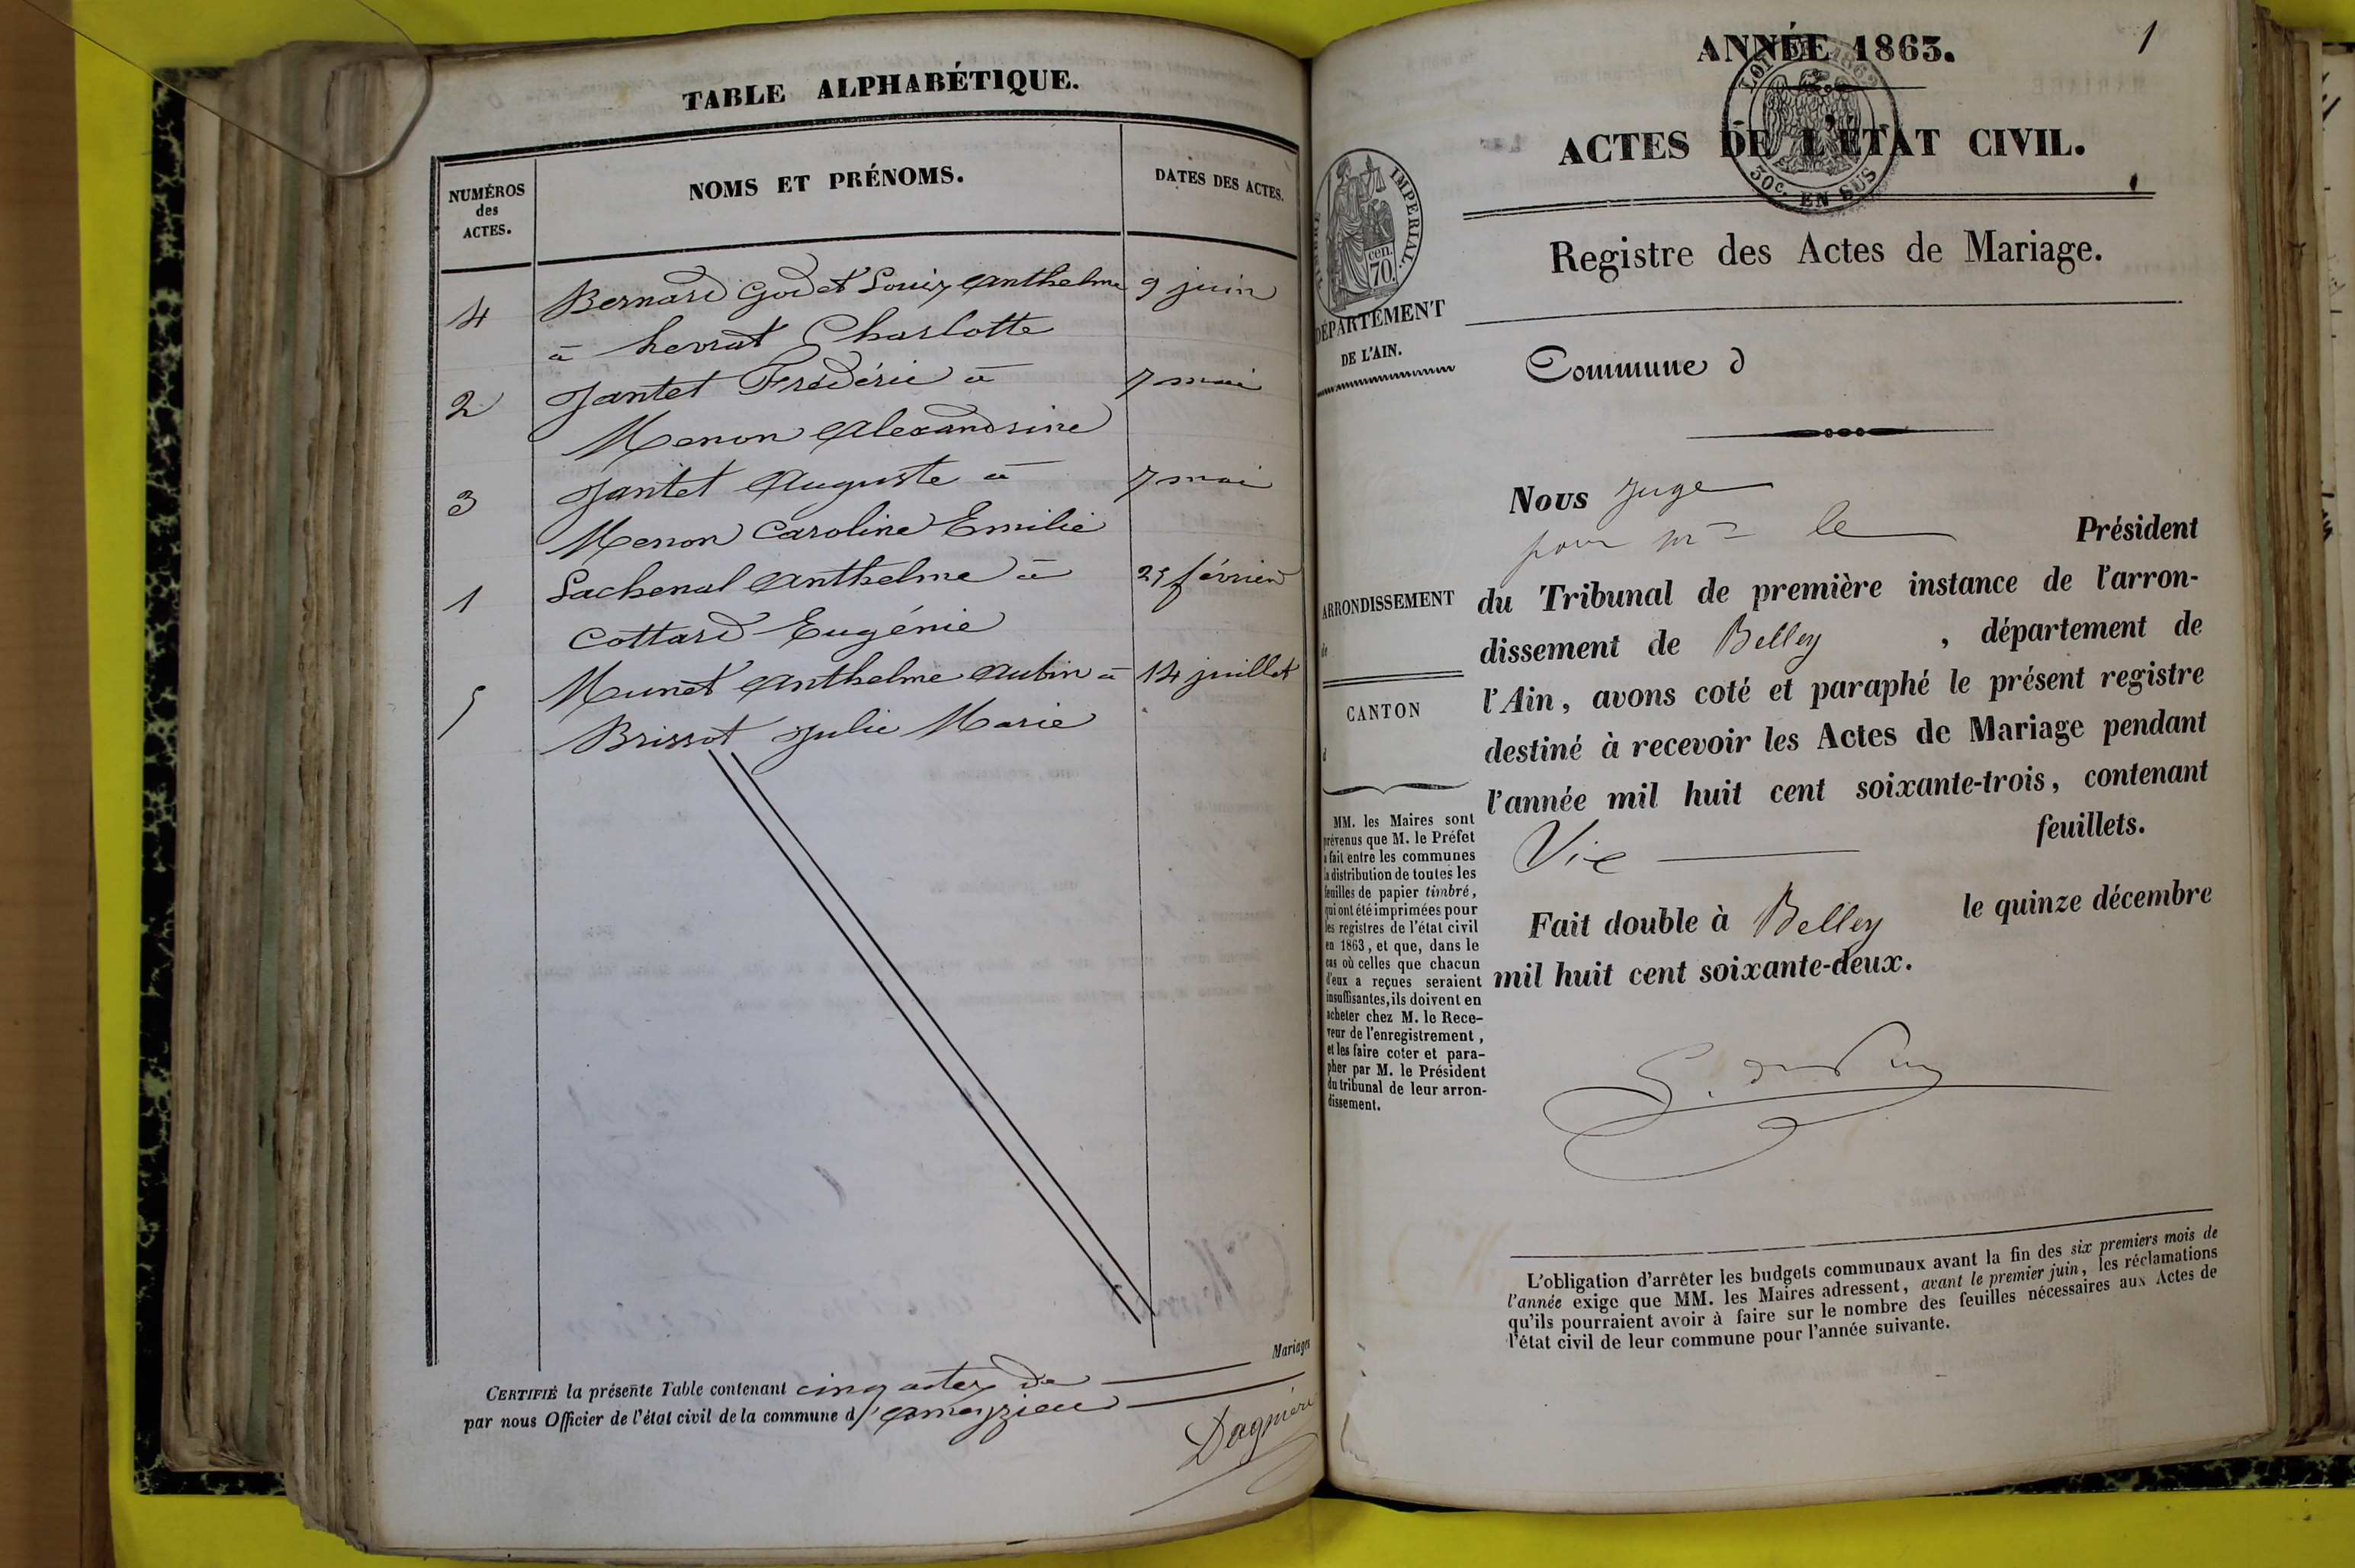 TABLE ALPHABÉTIQUE.
NUMÉROS
des
ACTES.
NOMS ET PRÉNOMS.
DATES DES ACTES.
4 Bernard Godet Louis Anthelme 9 juin
à Charlotte
2 Jantet Frédéric à 7 mai
Menon Alexandrine
3 Jantet Auguste à 7 mai
Menon Caroline Emilie
1 Lachenal Anthelme à 25 février
Cottard Eugénie
5 Munet Anthelme Aubin à 14 juillet
Brissot Julie Marie
CERTIFIÉ la présente Table contenant cinq actes de Mariages
par nous Officier de l'état civil de la commune d'Ameyzieu
Dagnieré
1
ANNÉE 1863.
LOI DE 1862
30c. EN SUS
ACTES DE L'ÉTAT CIVIL.
TIMBRE IMPERIAL.
cen.
70.
Registre des Actes de Mariage.
DÉPARTEMENT
DE L'AIN.
Commune d
Nous juge
pour mr le Président
du Tribunal de première instance de l'arron-
dissement de Belley , département de
l'Ain, avons coté et paraphé le présent registre
destiné à recevoir les Actes de Mariage pendant
l'année mil huit cent soixante-trois, contenant
feuillets.
Fait double à Belley le quinze décembre
mil huit cent soixante-deux.
ARRONDISSEMENT
de
CANTON
d
MM. les Maires sont
prévenus que M. le Préfet
a fait entre les communes
la distribution de toutes les
feuilles de papier timbré,
qui ont été imprimées pour
les registres de l'état civil
en 1863, et que, dans le
cas où celles que chacun
d'eux a reçues seraient
insuffisantes, ils doivent en
acheter chez M. le Rece-
veur de l'enregistrement,
et les faire coter et para-
pher par M. le Président
du tribunal de leur arron-
dissement.
L'obligation d'arrêter les budgets communaux avant la fin des six premiers mois de
l'année exige que MM. les Maires adressent, avant le premier juin, les réclamations
qu'ils pourraient avoir à faire sur le nombre des feuilles nécessaires aux Actes de
l'état civil de leur commune pour l'année suivante.